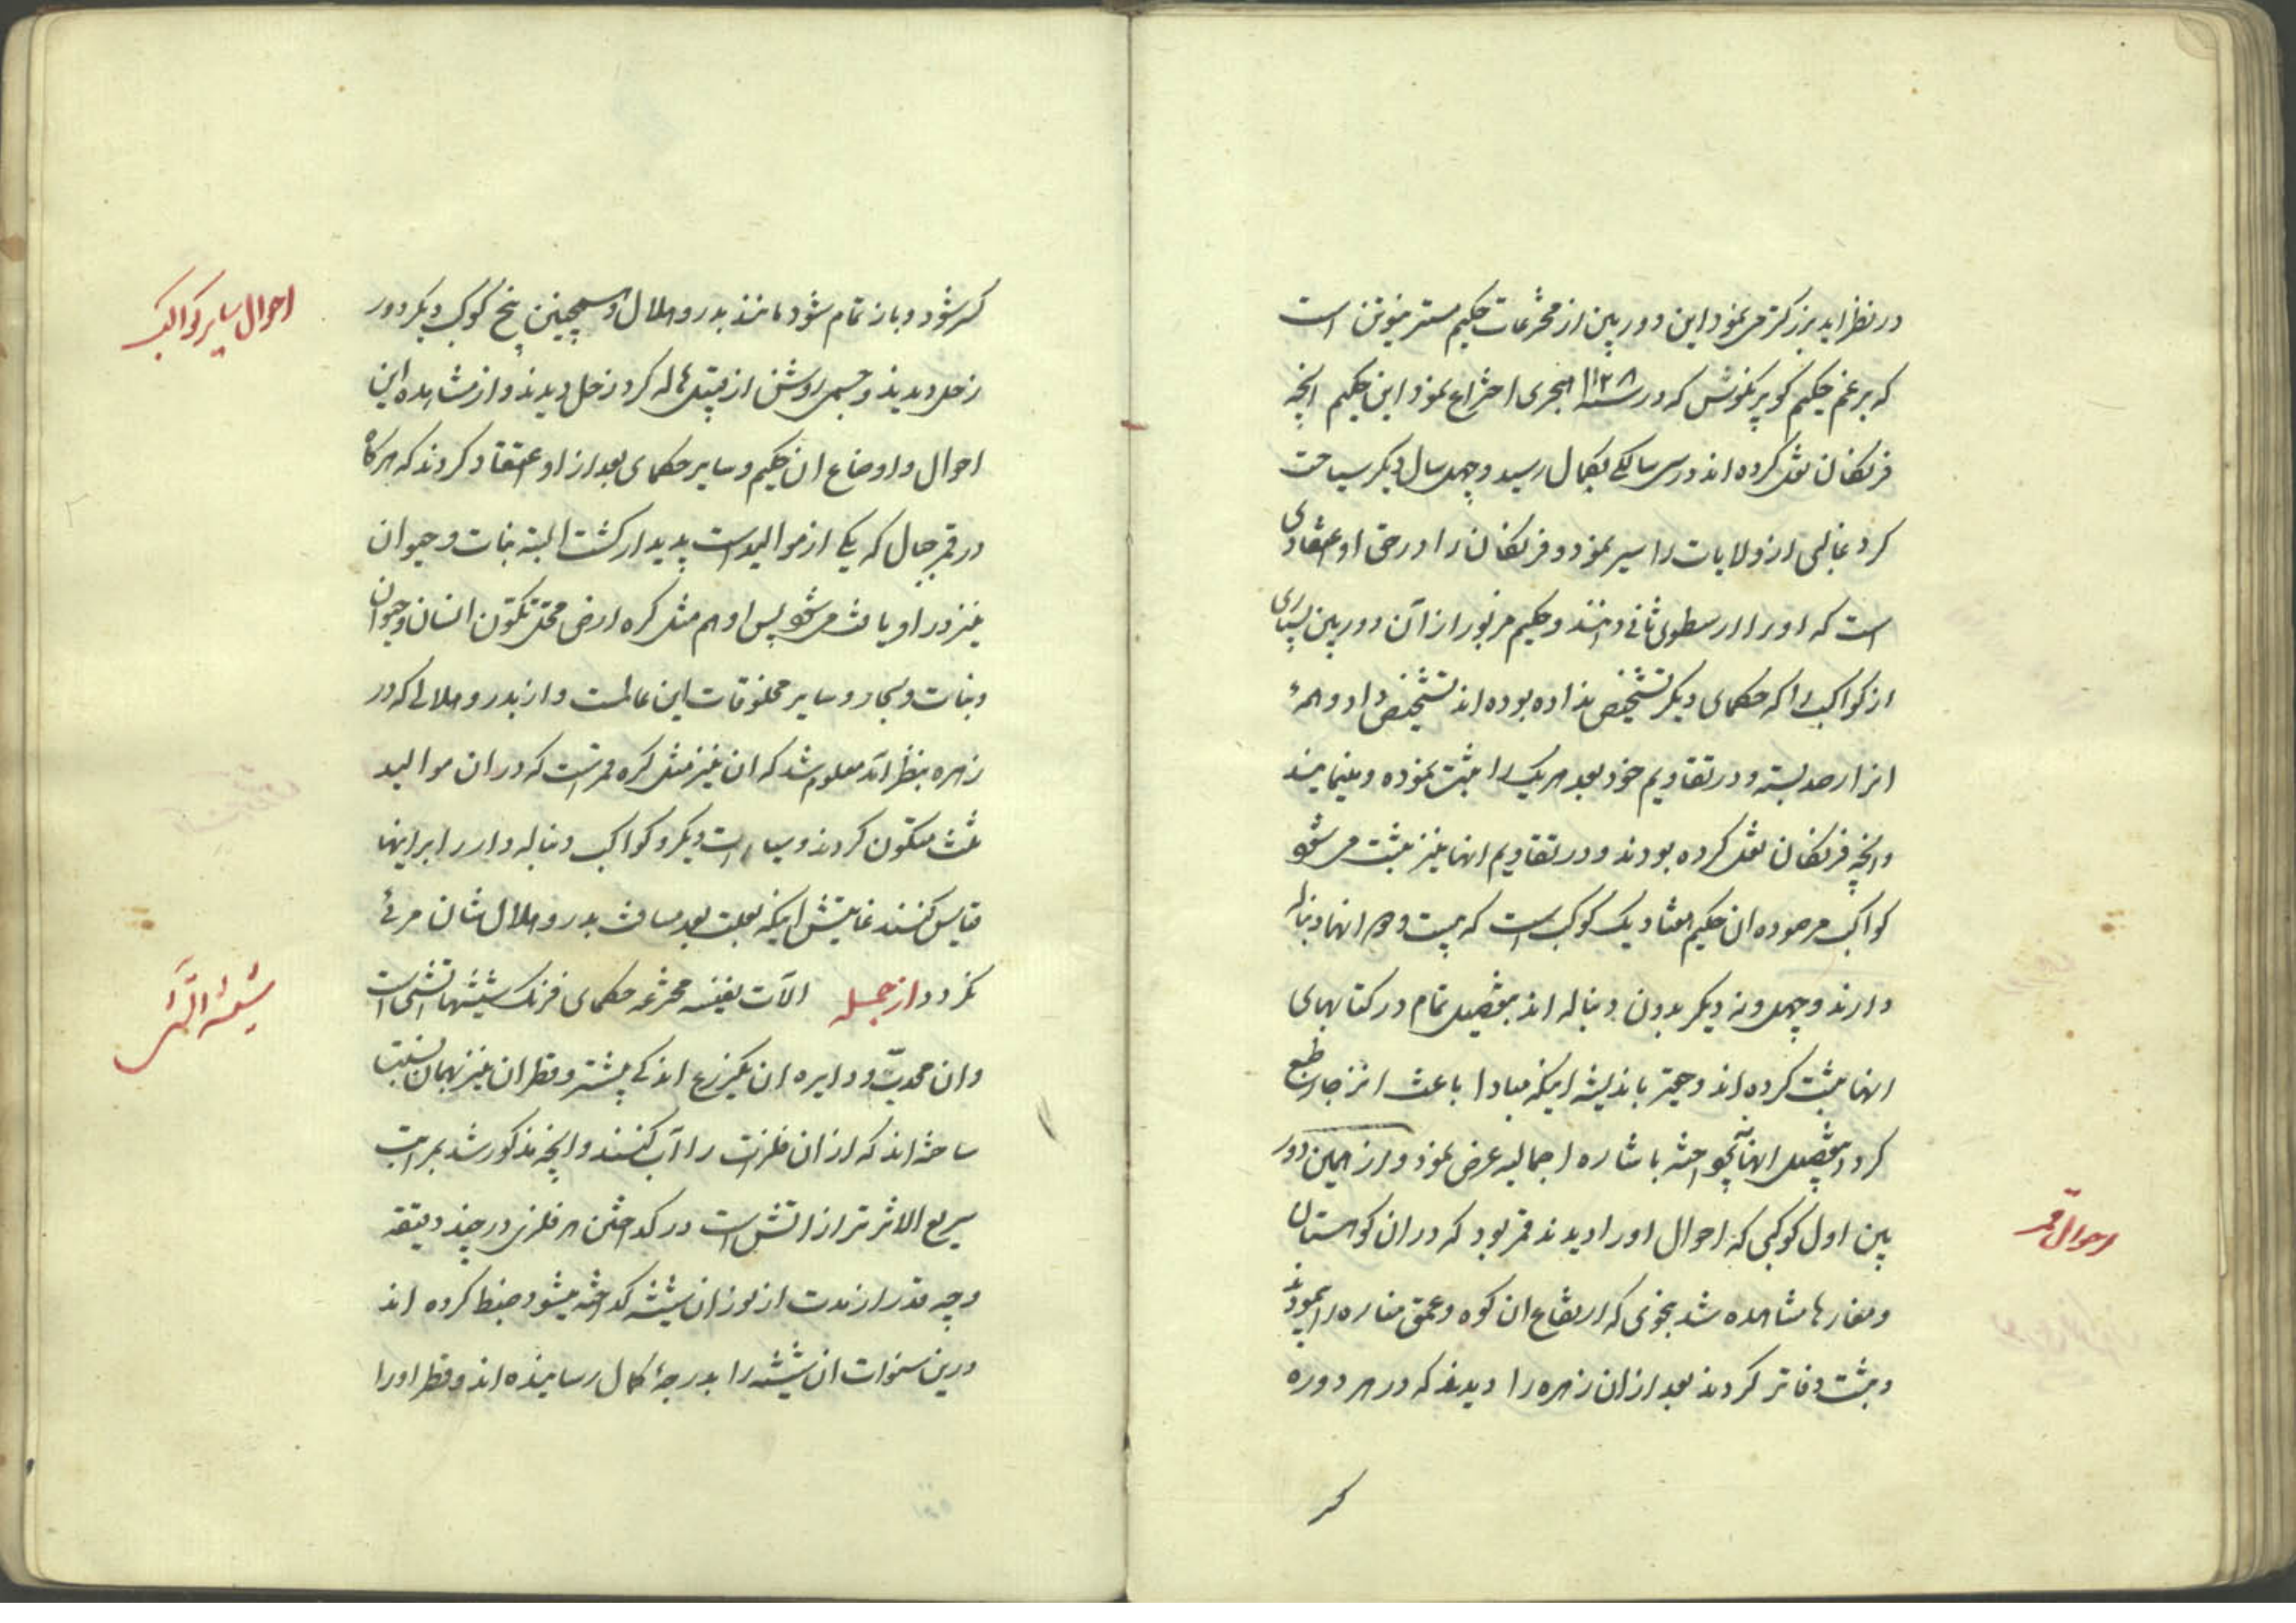 در نظر آید بزرکتر می نمود و این دوربین از مخترعات حکیم مستر نیوتن است
که برعم حکیم کوپرنکوس که در سنه ۱۱۲۸ هجری اختراع نمود این حکیم انچه
فرنکان نقل کرده اند در سی سالکی بکمال رسید و چهل سال دیکر سیاحت
کرد غالبی از ولایات را سیر نمود و فرنکان را در حق او اعتقادی
است که او را ارسطوی ثانی دانند و حکیم مزبور از آن دوربین بسیاری
از کواکب را که حکمای دیکر تشخیص نداده بوده اند تشخیص داد و همهٔ
انرا رصد بسته و در تقاویم خود بعد هریک را ثبت نموده و مینمایند
وانچه فرنکان نقل کرده بودند و در تقاویم انها نیز ثبت می شود
کواکب مرصوده ان حکیم هفتاد یک کوکب است که بیست و دو انها دنباله
دارند و چهل و نه دیکر بدون دنباله اند بتفصیل تمام در کتابهای
انها ثبت کرده اند و حقیر باندیشه اینکه مبادا باعث انزجار طبع
کردد تفصیل انها نپرداخته باشاره اجمالیه عرض نمود و از همین دور
بین اول کوکبی که احوال او را دیدند قمر بود که در ان کوهستان
و مغارها مشاهده شد بنحوی که ارتفاع ان کوه و عمق مغاره را پیمودند
و ثبت دفاتر کردند بعد از ان زهره را دیدند که در هر دوره
احوال قمر
کر
کمر شود و باز تمام شود مانند بدر و هلال و همچنین پنج کوکب دیکر دور
زحل دیدند و جسمی روشن از قبیل هاله کرد زحل دیدند و از مشاهده این
احوال و اوضاع ان حکیم و سایر حکمای بعد از او اعتقاد کردند که هرکاه
در قمر جبال که یکی از موالید است پدیدار کشت البته نبات و حیوان
نیز در او یافت می شود پس او هم مثل کره ارض محل تکون انسان و حیوان
و نبات و بحار و سایر مخلوقات این عالمست و از بدر و هلالی که در
زهره بنظر آمد معلوم شد که ان نیز مثل کره قمر است که در ان موالید
ثلث تکون کردند و سیارات دیکر و کواکب دنباله دار را بر اینها
قیاس کنند غایتش اینکه بعلت بعد مسافت بدر و هلال شان مرئی
نکردد از جمله الآت نفیسه مخترعه حکمای فرنک شیشهای آتشی است
و ان محدبّ و دایره ان یکزرع اندکی بیشتر و قطر ان نیز بهمان نسبت
ساخته اند که از ان فلزات را آب کنند و انچه مذکور شد بمراتب
سریع الاثر تر از اتش است در کداختن هر فلزی در چند دقیقه
و چه قدر از مدت از نور ان شیشه کداخته میشود ضبط کرده اند
درین سنوات ان شیشه را بدرجهٔ کمال رسانیده اند و قطر او را
احوال سایر کواکب
شیشهٔ آتشی